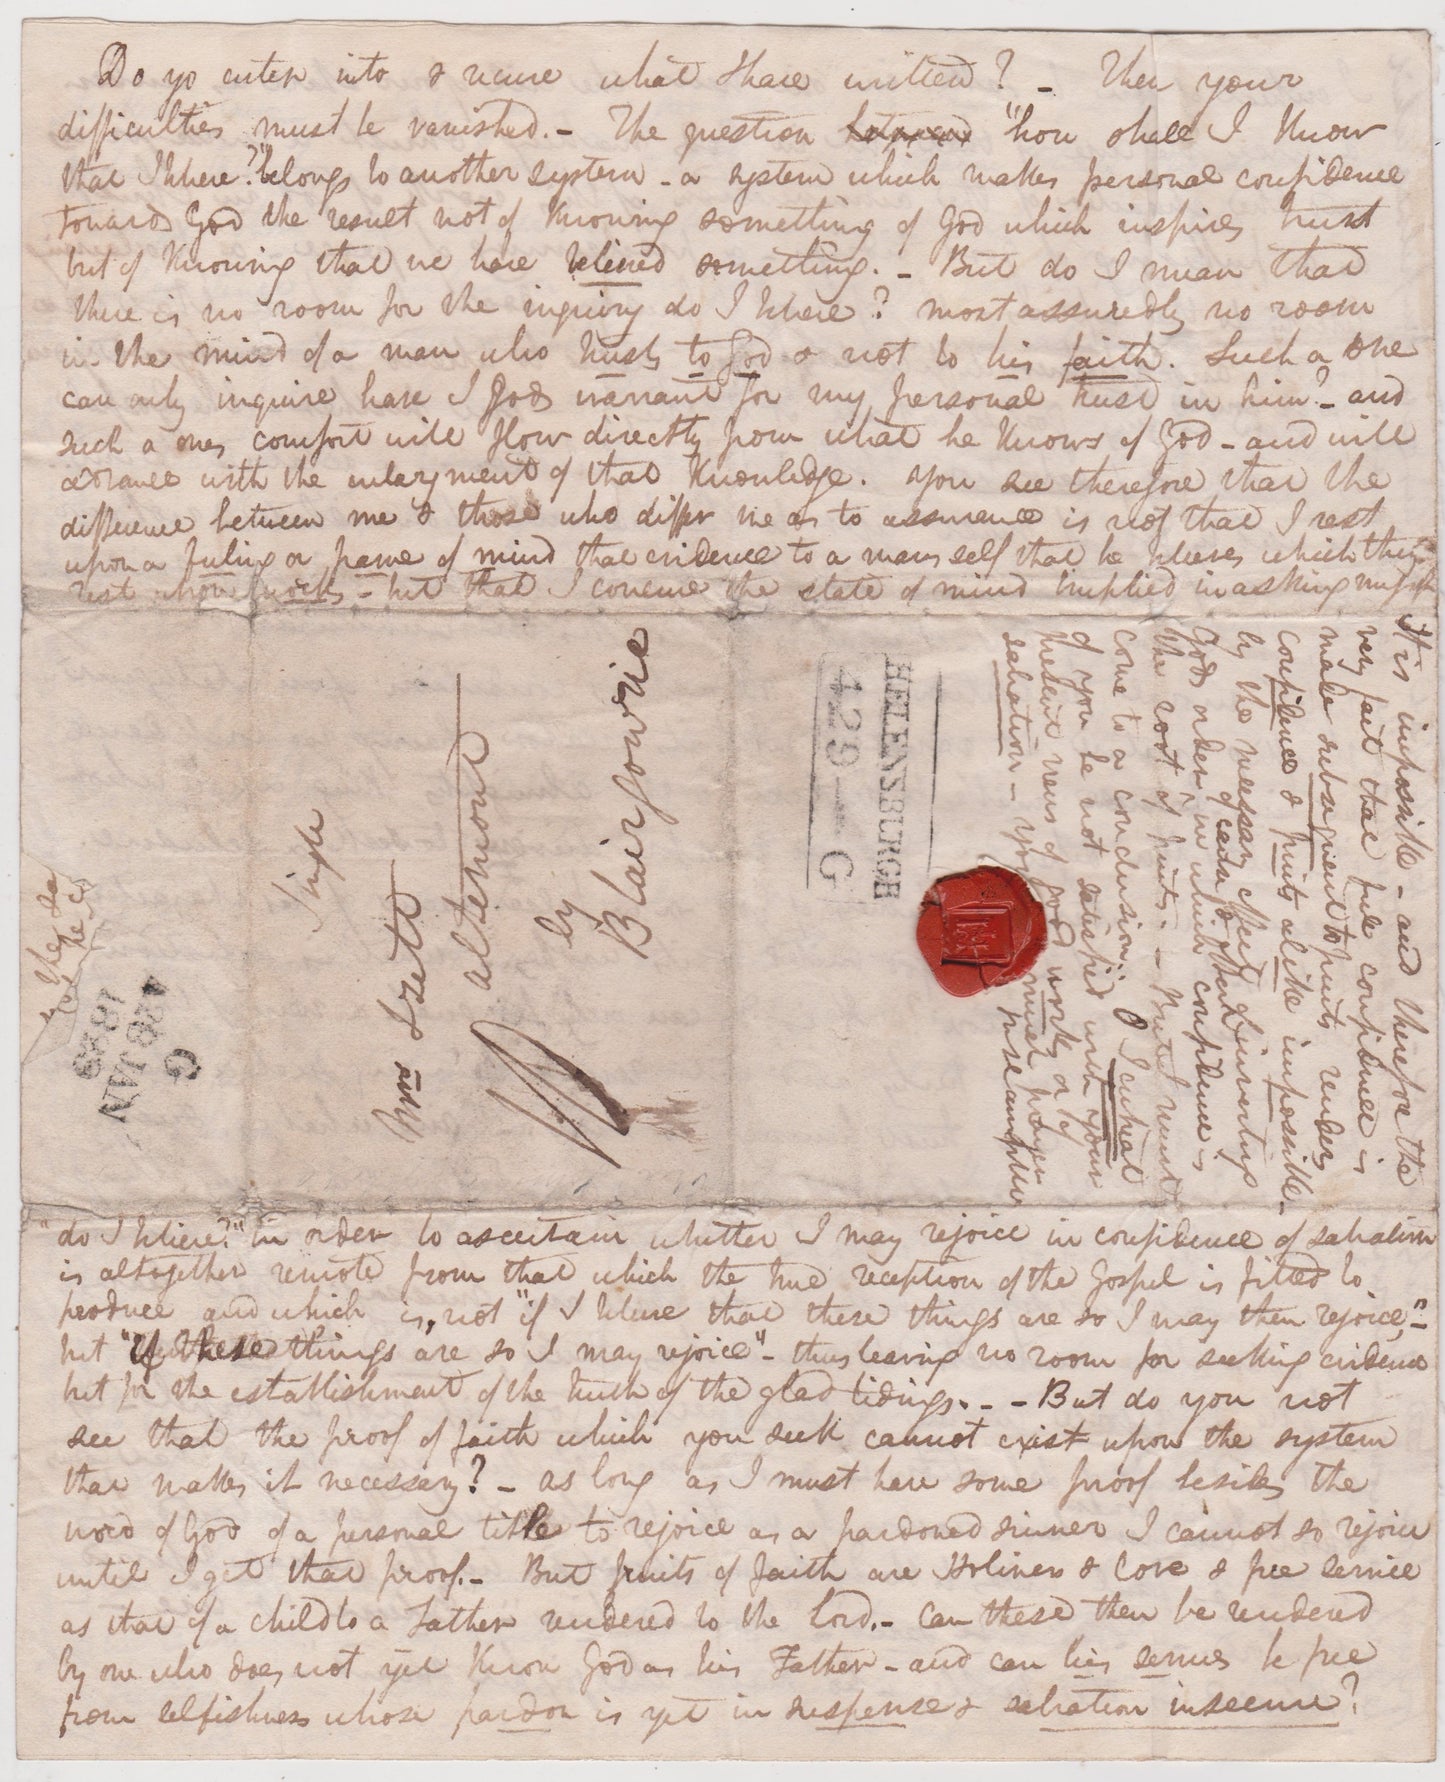 Do yo enter into & receive what I have written? - Then your
difficulties must be vanished. - The question "how shall I know
that I believe?" belongs to another system - a system which makes personal confidence
toward God the result not of knowing something of God which inspires trust
but of knowing that we have believed something. - But do I mean that
there is no room for the inquiry do I believe? most assuredly no room
in the mind of a man who trusts to God & not to his faith. Such a one
can only inquire have I Gods warrant for my personal trust in him? - and
such a ones comfort will flow directly from what he knows of God - and will
advance with the enlargement of that knowledge. You see therefore that the
difference between me & those who differ me as to assurance is not that I rest
upon a feeling or frame of mind that evidence to a mans self that he believes which they
rest upon works - but that I conceive the state of mind implied in asking myself
It is impossible - and therefore the
very fact that full confidence is
made subsequent to fruits renders
confidence & fruits alike impossible -
by the necessary effect of inverting
Gods order in which confidence is
of cause & effect
the root of fruits. - But I must
come to a conclusion. I entreat
of you be not satisfied with your
present views of God work or of
salvation - much prayer
HELENSBURGH
429 - G
by
Blairgowrie
Altemont
Mrs
Single
G
28 JAN
1829
the
he
"do I believe?" in order to ascertain whether I may rejoice in confidence of salvation
is altogether remote from that which the true reception of the Gospel is fitted to
produce and which is, not "if I believe that these things are so I may then rejoice," -
but "if these things are so I may rejoice" - thus leaving no room for seeking evidence
but for the establishment of the truth of the glad tidings. - - But do you not
see that the proof of faith which you seek cannot exist upon the system
that makes it necessary? - as long as I must have some proof besides the
word of God of a personal title to rejoice as a pardoned sinner I cannot so rejoice
until I get that proof. - But fruits of faith are Holiness & Love & free service
as that of a child to a Father rendered to the Lord. - Can these then be rendered
by one who does not yet know God as his Father - and can his services be free
from selfishness whose pardon is yet in suspense & salvation insecure?